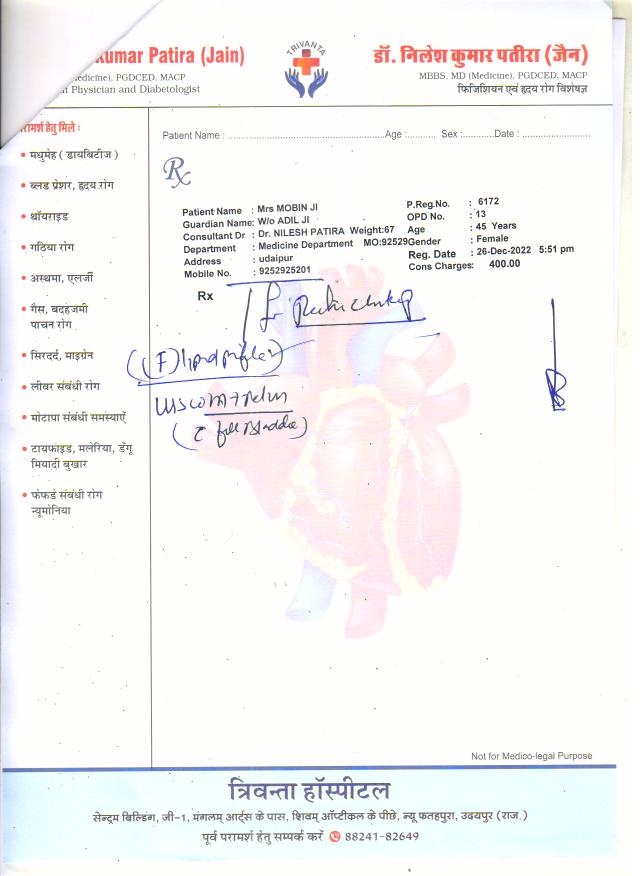 Kumar Patira (Jain)
Medicine), PGDCED, MACP
Physician and Diabetologist
TRIVANTA
डॉ. निलेश कुमार पतीरा (जैन)
MBBS, MD (Medicine), PGDCED, MACP
फिजिशियन एवं हृदय रोग विशेषज्ञ
परामर्श हेतु मिले :
• मधुमेह ( डायबिटीज )
• ब्लड प्रेशर, हृदय रोग
• थॉयराइड
• गठिया रोग
• अस्थमा, एलर्जी
• गैस, बदहजमी
पाचन रोग
• सिरदर्द, माइग्रेन
• लीवर संबंधी रोग
• मोटापा संबंधी समस्याएँ
• टायफाइड, मलेरिया, डेंगू
मियादी बुखार
• फंफडे संबंधी रोग
न्यूमोनिया
Patient Name : ............ Age : .......... Sex : .......... Date : ............
Rx
Patient Name : Mrs MOBIN JI
Guardian Name: W/o ADIL JI
Consultant Dr : Dr. NILESH PATIRA Weight:67
Department : Medicine Department MO:92529
Address : udaipur
Mobile No. : 9252925201
P.Reg.No. : 6172
OPD No. : 13
Age : 45 Years
Gender : Female
Reg. Date : 26-Dec-2022 5:51 pm
Cons Charges: 400.00
Rx
(F) lipid profile
full Bladder)
Not for Medico-legal Purpose
त्रिवन्ता हॉस्पीटल
सेन्ट्रम बिल्डिंग, जी-1, मंगलम् आर्ट्स के पास, शिवम् ऑप्टीकल के पीछे, न्यू फतहपुरा, उदयपुर (राज.)
पूर्व परामर्श हेतु सम्पर्क करें 88241-82649